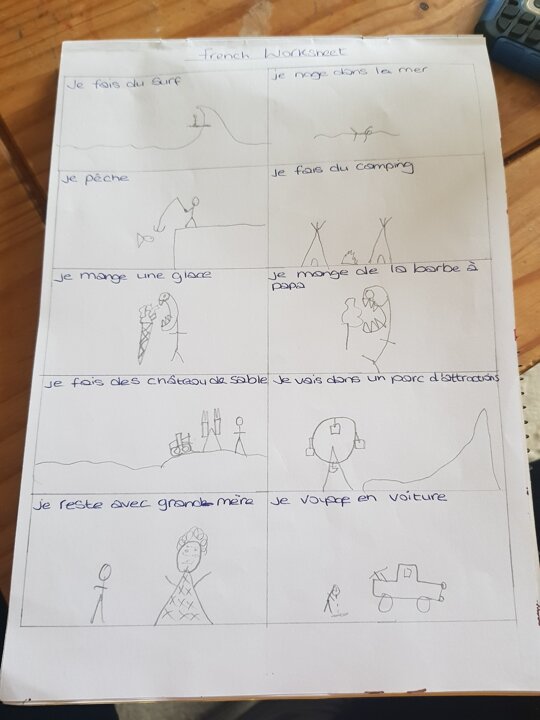 french Worksheet
je fais du surf
je nage dans la mer
je pêche
je fais du camping
je mange une glace
je mange de la barbe à
papa
je fais des château de sable
je vais dans un parc d'attractions
je reste avec grand-mère
je voyage en voiture